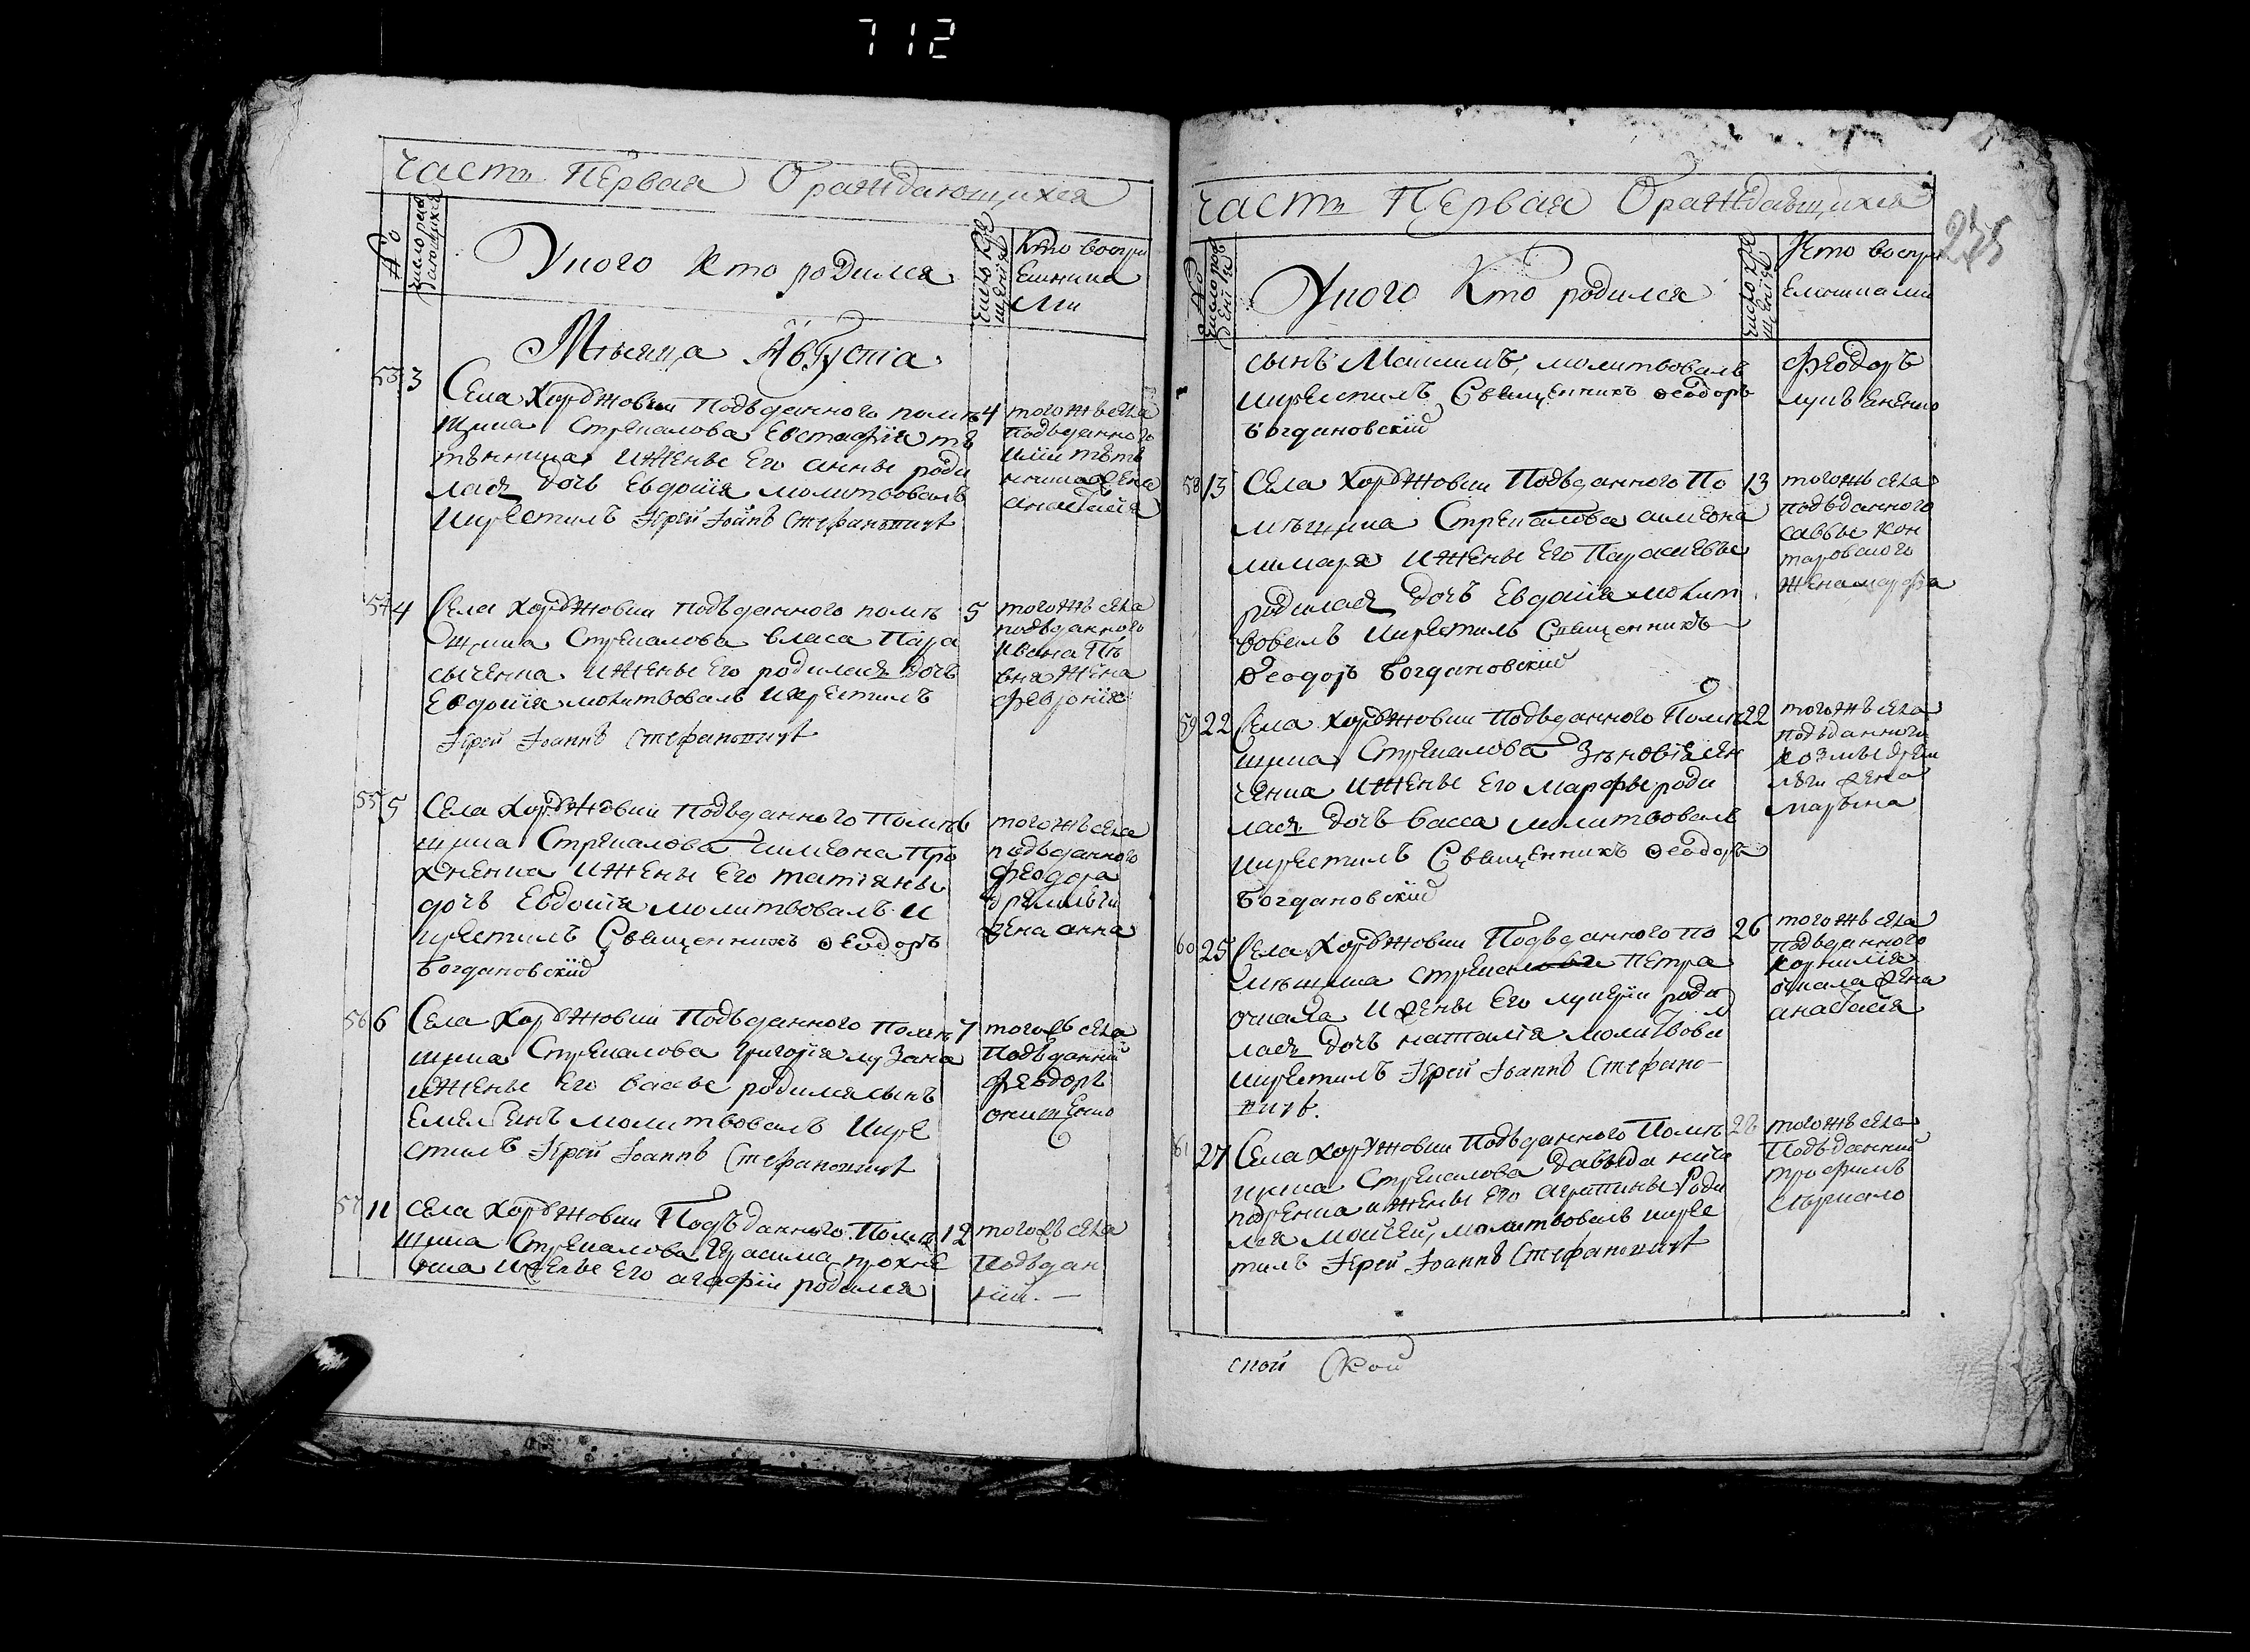 712
часть Первая О раждающихся
№
число рождающихся
Укого Кто родился
число крещения
Кто воспри
емника
ми
Мѣсяца Августа
53 3 Села Хоружовки Подъданного помѣ 4
щика Стрекалова Евстафия
иженые Его анны роди
лася дочь Евдокия молитвовалъ
икрестилъ Іерей Іоаннъ Стефановичъ
тогожъ села
подъданного
жена
анастасия
54 4 Села Хоружовки подъданного помѣ 5
щика Стрекалова власа Пара
сыченка иженые Его родилася дочь
Евдокия молитвовалъ икрестилъ
Іерей Іоаннъ Стефановичъ
тогожъ села
подъданного
ивана
жена
феврония
55 5 Села Хоружовки Подъданного Помѣ 6
щика Стрекалова симеона Про
хненка иженые Его татияны
дочь Евдокия молитвовалъ и
крестилъ Священникъ Ѳеодоръ
Богдановский
тогожъ села
подъданного
феодора
жена анна
56 6 Села Хоружовки Подъданного Помѣ 7
щика Стрекалова григория лузана
иженые Его вассы родился сынъ
Емелиянъ молитвовалъ икре
стилъ Іерей Іоаннъ Стефановичъ
тогожъ села
Подъданний
феодоръ
онищенко
57 11 Села Хоружовки Подъданного Помѣ 12
щика Стрекалова Герасима прохне
нка иженые Его агафии родился
тогожъ села
Подъдан
ний. —
часть Первая О раждающихся
275
№
Укого Кто родился
Кто воспри
емниками
сынъ Максимъ, молитвовалъ
икрестилъ Священникъ Ѳеодоръ
Богдановский
феодоръ
58 13 Села Хоружовки Подъданного По 13
мѣщика Стрекалова симеона
лимаря иженые Его Параскевые
родилася дочь Евдокия молит
вовалъ икрестилъ Священникъ
Ѳеодоръ Богдановский
тогожъ села
подъданного
саввы кон
таровского
жена марфа
59 22 Села Хоружовки Подъданного Помѣ 22
щика Стрекалова Зѣновия сен
ченка иженые Его марфы роди
лася дочь васса молитвовалъ
икрестилъ Священникъ Ѳеодоръ
Богдановский
тогожъ села
подъданного
козмы
жена
марына
60 25 Села Хоружовки Подъданного по 26
мѣщика стрекалова Петра
очкала ижены Его лукерии роди
лася дочь наталия молитвовал
икрестилъ Іерей Іоаннъ Стефано-
вичъ.
тогожъ села
подъданного
корнилия
очкала жена
анастасия
61 27 Села Хоружовки Подъданного Помѣ 28
щика Стрекалова давыда ничи
поренка иженые Его агрипины роди
лся моисей, молитвовалъ икре
тилъ Іерей Іоаннъ Стефановичъ
тогожъ села
Подъданний
трофимъ
ской